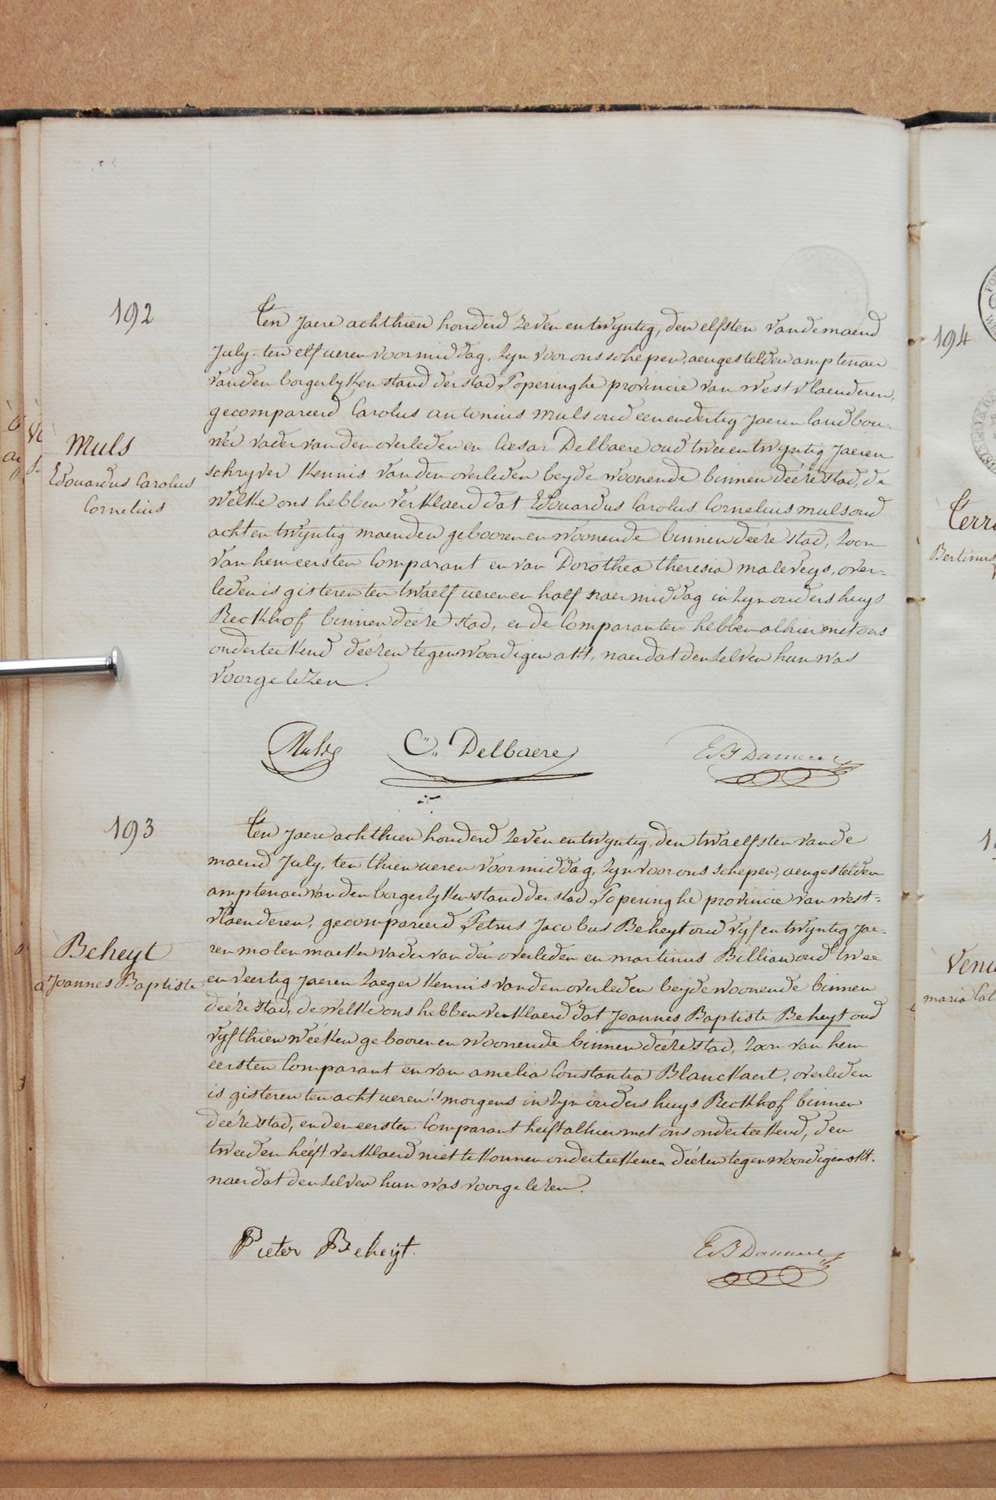 192
Ten Jaere achthien honderd zeven entwyntig, den elfsten vandemaend
July, ten elf ueren voormiddag, zyn voor ons schepen, aengestelden amptenaer
vanden borgerlyken stand der stad Poperinghe provincie van West Vlaenderen,
gecompareerd Carolus antonius muls oud eenendertig Jaeren landbou-
wer vader van den overleden en Cæsar Delbaere oud twee entwyntig Jaeren
schryver kennis van den overleden beyde woonende binnen deéze stad, de
welke ons hebben verklaerd dat Edouardus Carolus Cornelius muls oud
acht entwyntig maenden gebooren en woonende binnen deéze stad, Zoon
van hem eersten Comparant en van Dorothea theresia maleveys, over-
leden is gisteren ten twaelf ueren en half naermiddag in zyn ouders huys
Reckhof binnen deéze stad, en de Comparanten hebben alhier met ons
onderteekend deézen tegenwoordigen akt, naer dat den zelven hun was
voorgelezen.
Muls
Edouardus Carolus
Cornelius
Muls
Cr. Delbaere
193
Ten Jaere achthien honderd zeven entwyntig, den twaelfsten vande
maend July, ten thien ueren voormiddag, zyn voor ons schepen, aengestelden
amptenaer van den borgerlyken stand der stad Poperinghe provincie van west-
vlaenderen, gecompareerd Petrus Jacobus Beheyt oud vyf en twyntig Jae-
ren molenmaeker vader van den overleden en martinus Billiau oud twee
en veertig Jaeren zaeger kennis van den overleden beyde woonende binnen
deéze stad, de welke ons hebben verklaerd dat Joannes Baptiste Beheyt oud
vyfthien wéeken gebooren en woonende binnen deéze stad, Zoon van hem
eersten Comparant en van amelia Constantia Blanckaert, overleden
is gisteren ten acht ueren 's morgens in zyn ouders huys Reckhof binnen
deéze stad, en den eersten Comparant heeft alhier met ons onderteekend, den
tweeden heéft verklaerd niet te konnen onderteekenen deézen tegenwoordigen akt.
naer dat den zelven hun was voorgelezen.
Beheyt
Joannes Baptiste
Pieter Beheyt.
194
Bertinus
maria